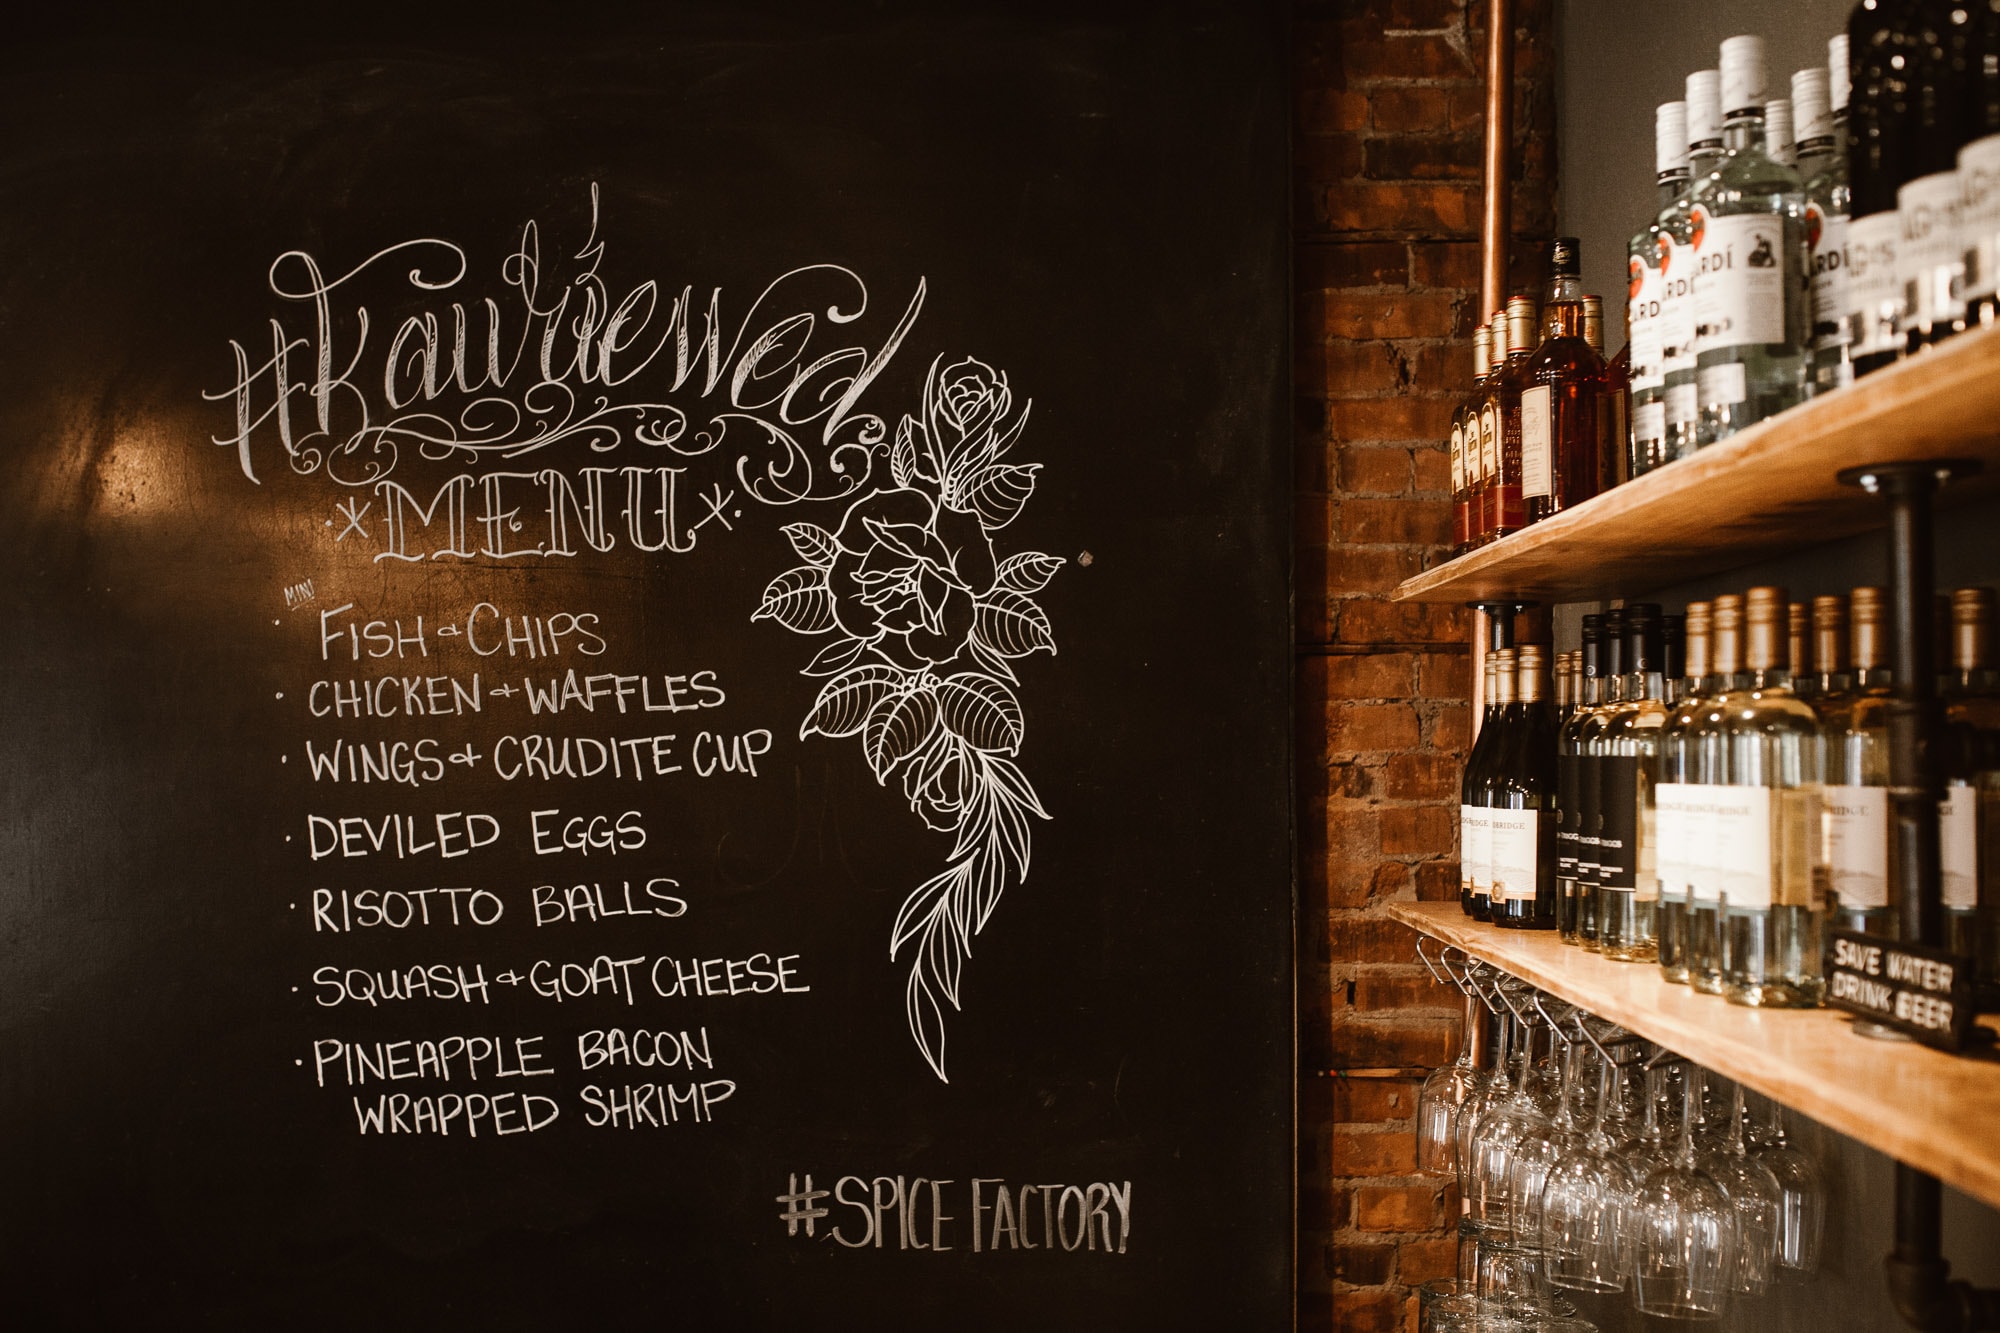 MENU
MINI
· FISH & CHIPS
· CHICKEN & WAFFLES
· WINGS & CRUDITE CUP
· DEVILED EGGS
· RISOTTO BALLS
· SQUASH & GOAT CHEESE
· PINEAPPLE BACON
WRAPPED SHRIMP
#SPICE FACTORY
SAVE WATER
DRINK BEER